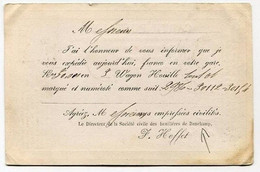 Messieurs
J'ai l'honneur de vous informer que je
vous expédie aujourd'hui, franco en votre gare,
Wagon Houille
marqué et numéroté comme suit
Agréez, Messieurs mes empressées civilités.
Le Directeur de la Société civile des houillères de Ronchamp,
F. Hoffet